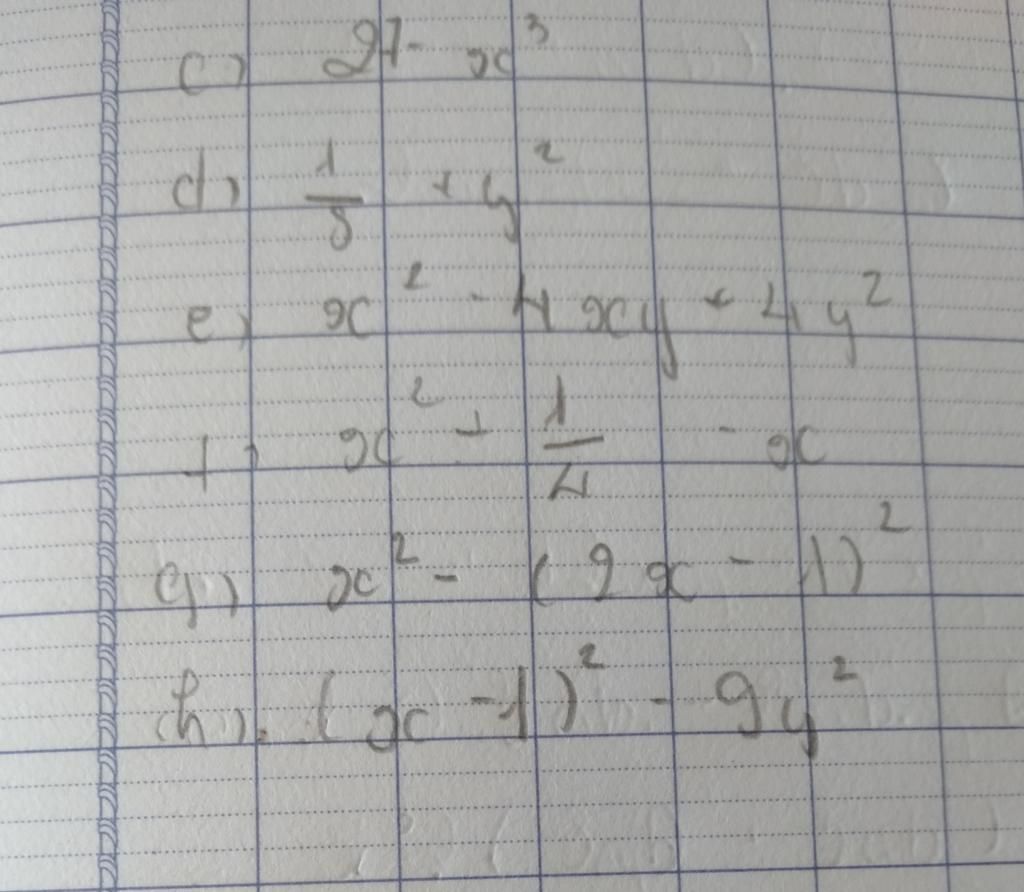 c) 27 - x³
d) 1/8 + y²
e) x² - 4xy + 4y²
f) x² + 1/4 - x
g) x² - (2x - 1)²
h). (x - 1)² - 9y²